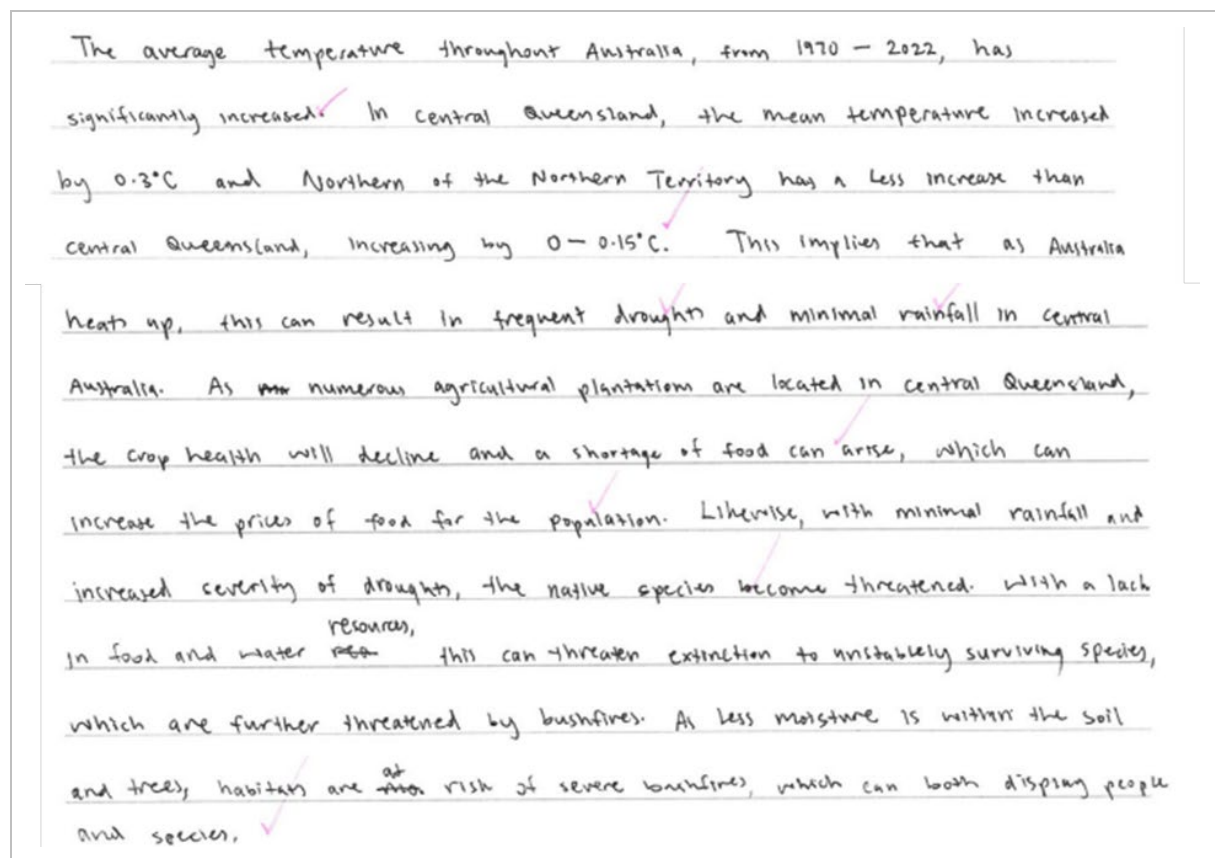 The average temperature throughout Australia, from 1970 – 2022, has
significantly increased. In central Queensland, the mean temperature increased
by 0.3°C and Northern of the Northern Territory has a less increase than
central Queensland, increasing by 0 – 0.15°C. This implies that as Australia
heats up, this can result in frequent droughts and minimal rainfall in central
Australia. As numerous agricultural plantations are located in central Queensland,
the crop health will decline and a shortage of food can arise, which can
increase the prices of food for the population. Likewise, with minimal rainfall and
increased severity of droughts, the native species become threatened. With a lack
in food and water resources, this can threaten extinction to unstablely surviving species,
which are further threatened by bushfires. As less moisture is within the soil
and trees, habitats are at risk of severe bushfires, which can both people
and species.